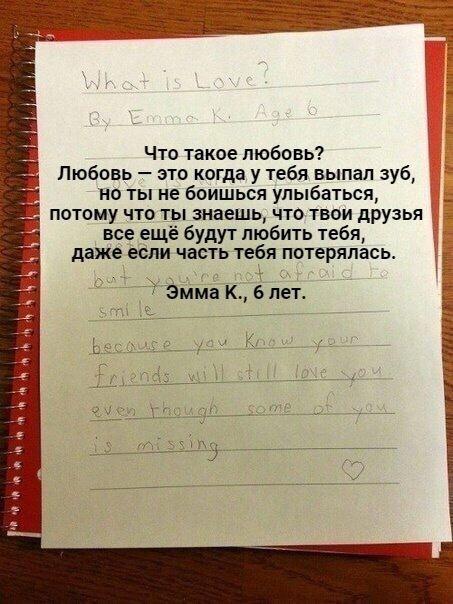 What is Love?
By Emma K. Age 6
Что такое любовь?
Любовь — это когда у тебя выпал зуб,
но ты не боишься улыбаться,
потому что ты знаешь, что твои друзья
все ещё будут любить тебя,
даже если часть тебя потерялась.
Эмма К., 6 лет.
but you're not afraid to
smile
because you know your
friends will still love you
even though some of you
is missing